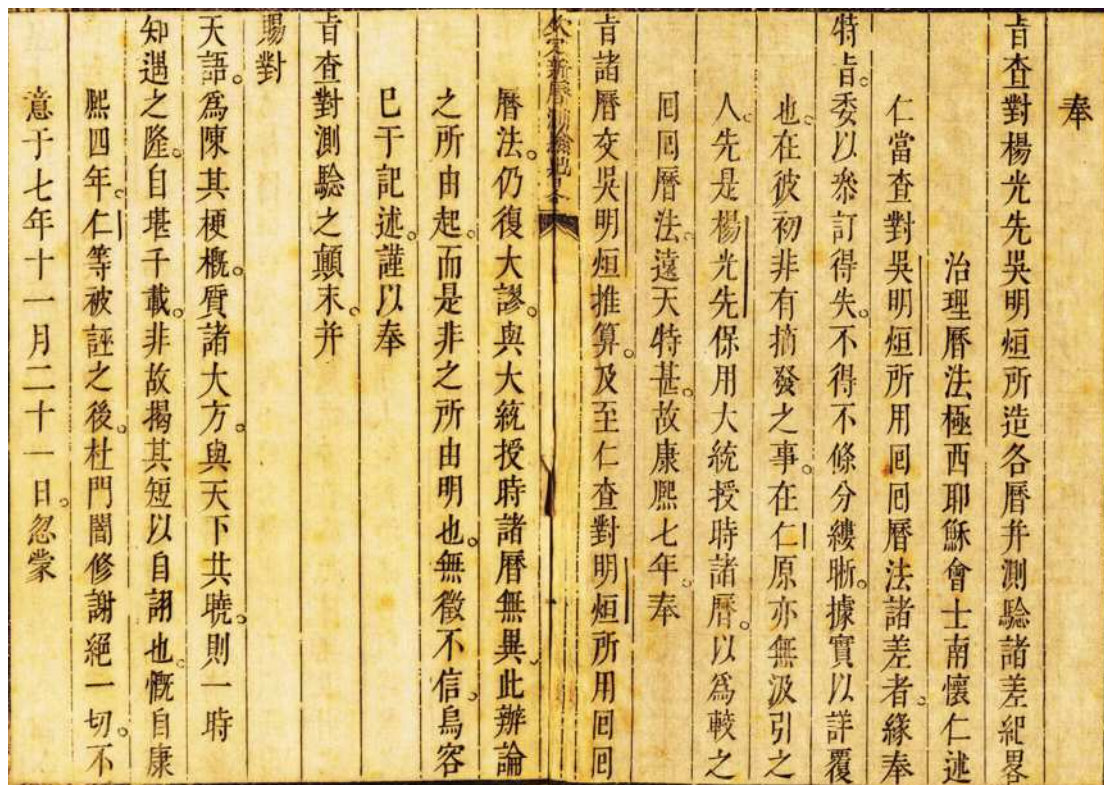 奉
旨查對楊光先吳明烜所造各曆并測驗諸差紀畧
治理曆法極西耶穌會士南懷仁述
仁當查對吳明烜所用回回曆法諸差者。緣奉
特旨。委以叅訂得失。不得不條分縷晰。據實以詳覆
也。在彼初非有摘發之事。在仁原亦無汲引之
人。先是楊光先保用大統授時諸曆。以爲較之
回回曆法。遠天特甚。故康熙七年。奉
旨諸曆交吳明烜推算。及至仁查對明烜所用回回
欽定新曆測驗紀畧
曆法。仍復大謬。與大統授時諸曆無異。此辦論
之所由起。而是非之所由明也。無徵不信。烏容
巳于記述。謹以奉
旨查對測驗之顛末。并
賜對
天語。爲陳其梗槪。質諸大方。與天下共曉。則一時
知遇之隆。自堪千載。非故揭其短以自詡也。慨自康
熙四年。仁等被誣之後。杜門闇修謝絕一切。不
意于七年十一月二十一日。忽蒙